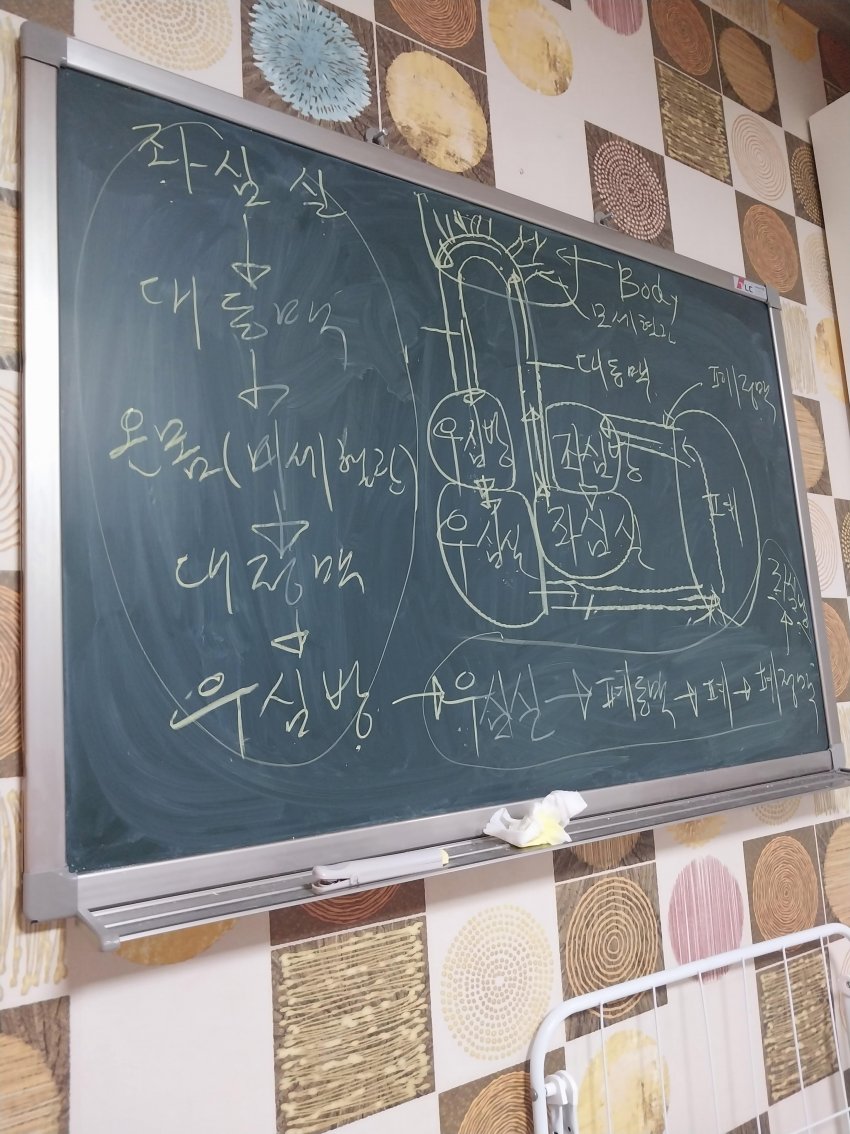 좌심실
대동맥
온몸(미세혈관)
대정맥
우심방 → 우심실 → 폐동맥 → 폐 → 폐정맥
Body
모세혈관
대동맥
폐정맥
우심방
좌심방
폐
우심실
좌심실